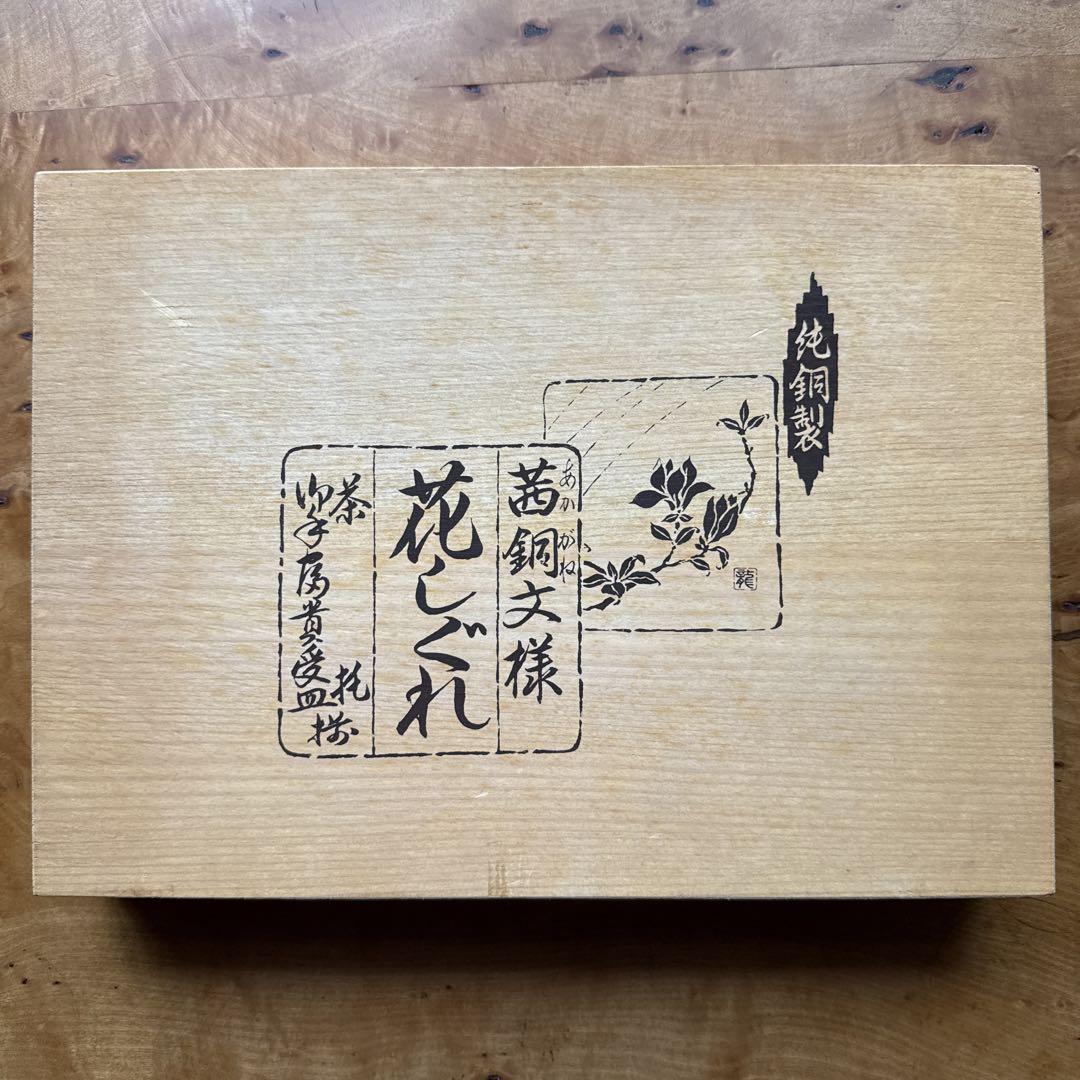 純銅製
あかがね
茜銅文様
花しぐれ
茶托
受皿
揃
龍